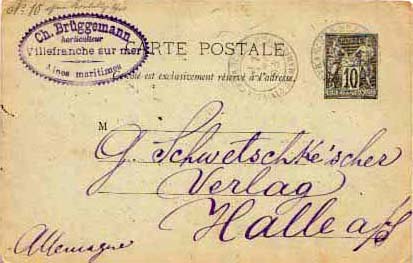 Ch. Brüggemann
horticulteur
Villefranche sur mer
Alpes maritimes
CARTE POSTALE
Ce côté est exclusivement réservé à l'adresse.
10
M
G. Schwetschke'scher
Verlag
Halle a/S
Allemagne